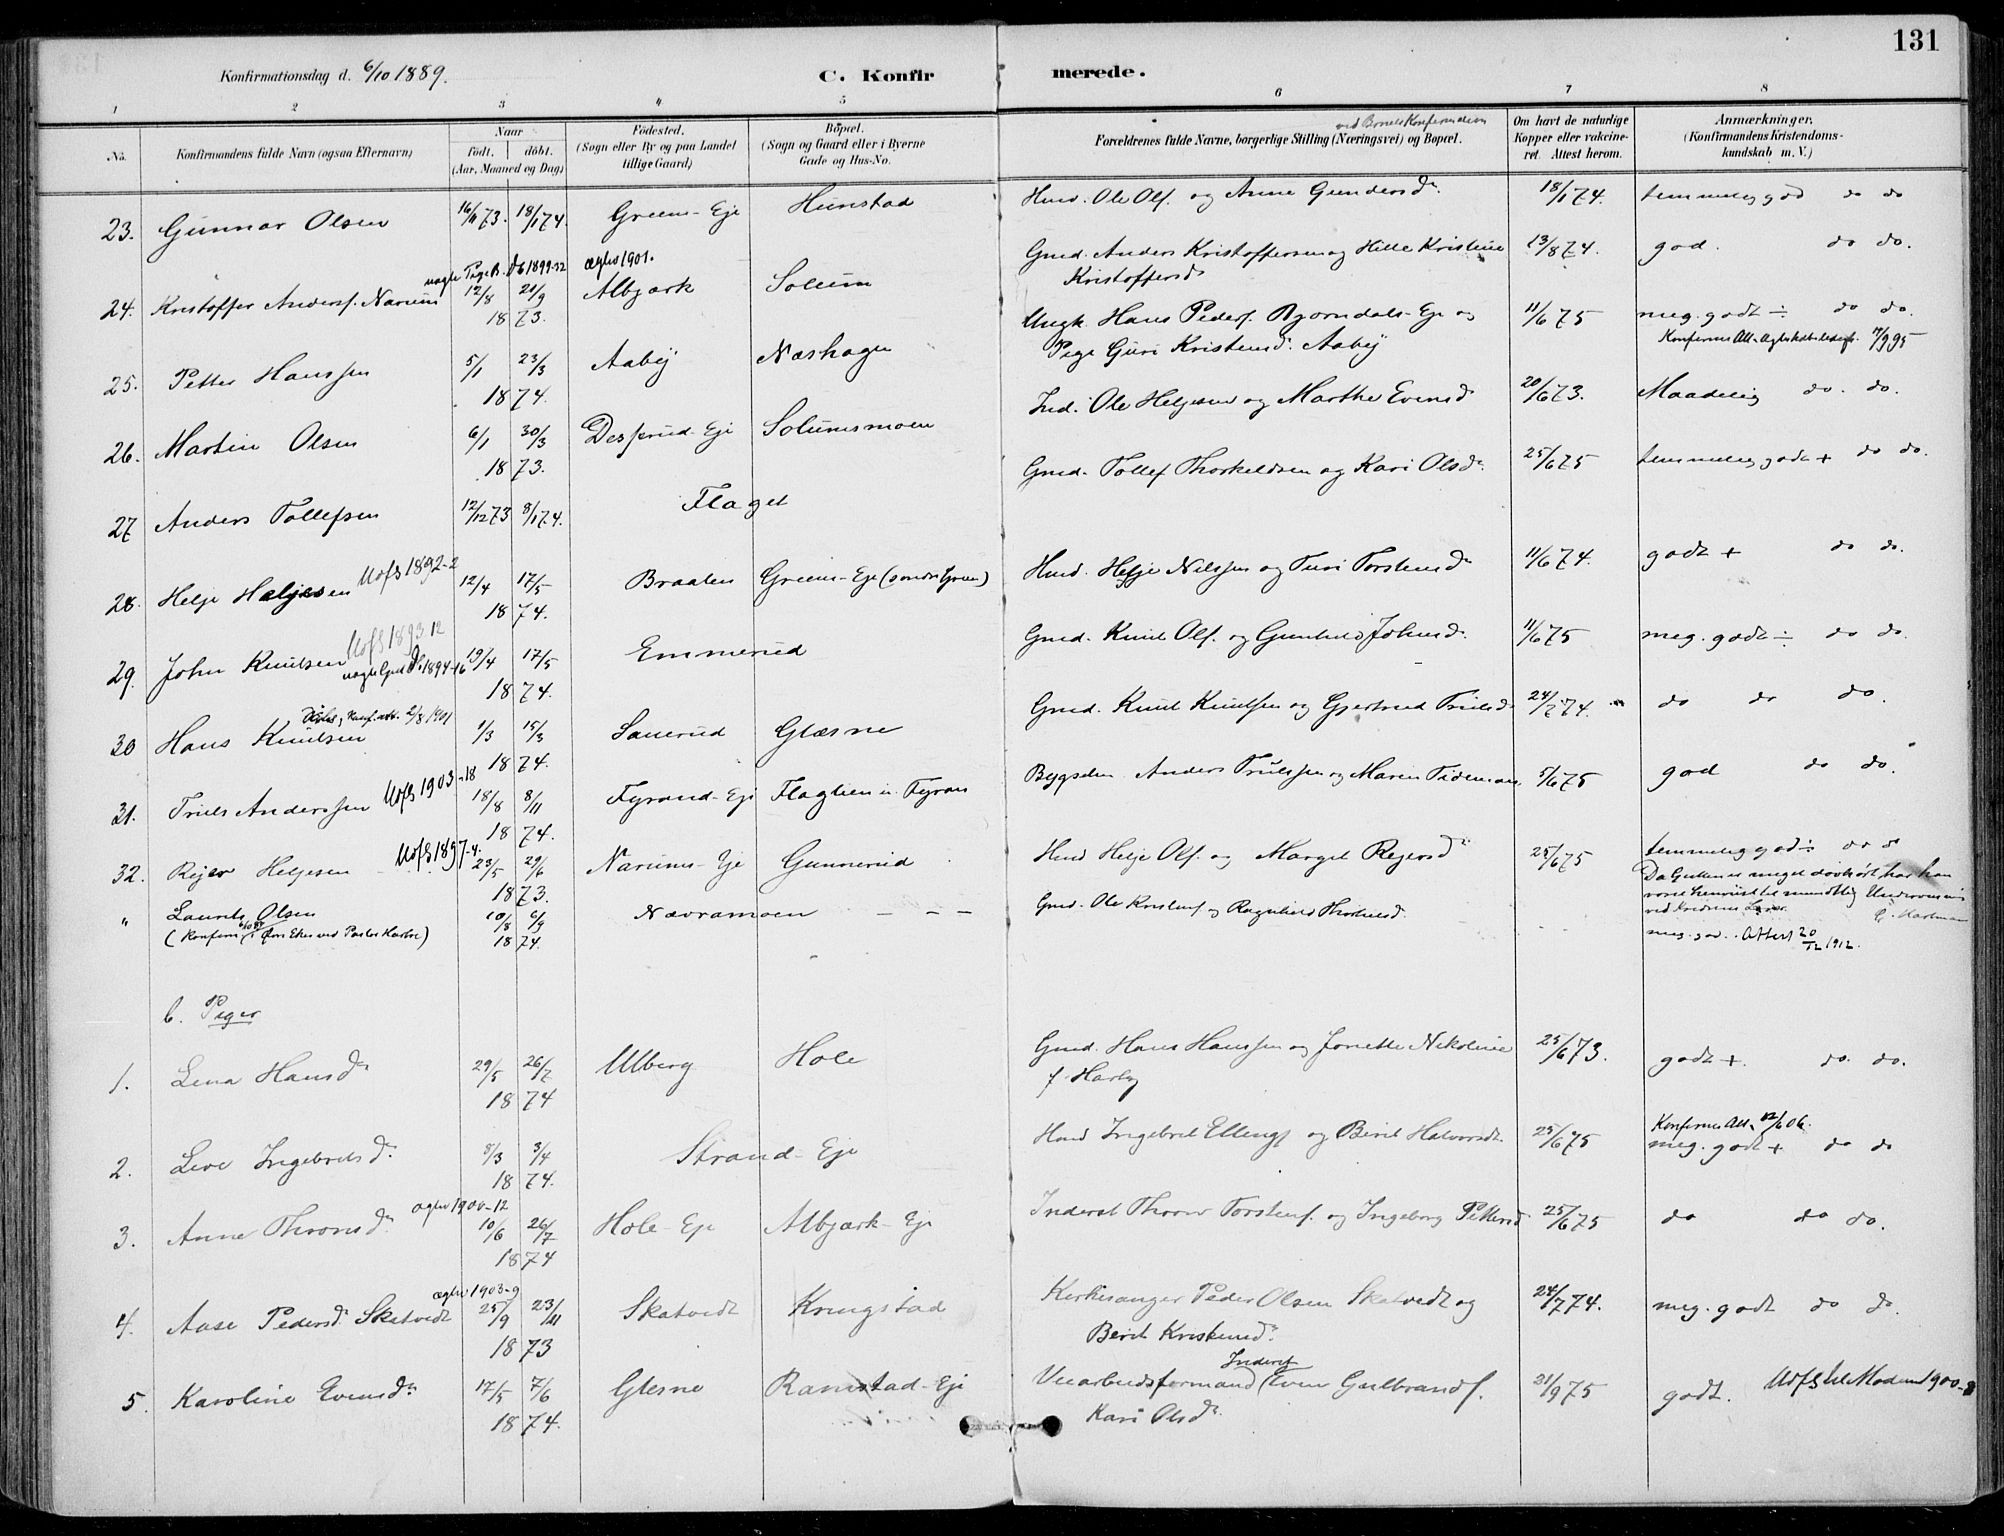 131
Konfirmationsdag d. 6/10 1889. C. Konfirmerede.
1 2 3 4 5 6 7 8
No. Konfirmandens fulde Navn (ogsaa Efternavn) Naar født. døbt. (Aar, Maaned og Dag) Fødested. (Sogn eller By og paa Landet tillige Gaard) Bopæl. (Sogn og Gaard eller i Byerne Gade og Hus-No. Forældrenes fulde Navne, borgerlige Stilling (Næringsvei) og Bopæl. Om havt de naturlige Kopper eller vakcineret. Attest herom. Anmærkninger. (Konfirmandens Kristendomskundskab m. V.)
23. Gunnar Olsen 16/11 73. 18/1 74. Greens-Eje Hunstad Husd. Ole Ols. og Anne Gundersd. 18/1 74. temmelig god do do
ægtev 1901.
24. Kristoffer Anders. Narum 12/8 21/9 1873. Albjærk Solum Gmd. Anders Kristoffersen og Hille Kristine Kristoffersd. 13/8 74. god. do do.
25. Petter Hanssen 5/1 23/3 1874. Aaby Næshagen Ungk. Hans Peders. Bjørndals-Eje og Pige Guri Kristensd. Aaby 11/6 75 meg. godt ÷ do do.
26. Martin Olsen 6/1 30/3 1873. Desserud-Eje Solumsmoen Ind. Ole Helgesen og Marthe Evensd. 20/6 73. Maadelig do. do.
27 Anders Tollefsen 12/12 73 8/1 74. Flaget Gmd. Tollef Thorkeldsen og Kari Olsd. 25/6 75 temmelig godt + do do.
28. Helge Helgesen Udfl 1892-2 12/4 17/5 1874. Braaten Greens-Eje (søndre Green) Husd. Helge Nilssen og Turi Torstensd. 11/6 74. godt + do do.
Udfl 1893 12
29. John Knutsen 19/4 17/5 1874. Emmerud Gmd. Knut Ols. og Gunhild Johnsd. 11/6 75 meg. godt ÷ do do.
30 Hans Knutsen 1/3 15/3 1874. Sanerud Glæsne Gmd. Knut Knutsen og Gjertrud Trulsd. 24/7 74. do do do.
31. Truls Anderssen Udfl 1903-18 18/8 8/11 1874. Fyrand-Eje Flaglien u. Fyran Bygselm. Anders Trulssen og Maren Tidemansd. 5/6 75 god do do.
32. Rejer Helgesen Udfl 1897-4. 23/5 29/6 1873. Narums-Eje Gunnerud Husd Helge Ols. og Marget Rejersd. 25/6 75 temmelig god ÷ do do
" Laurits Olsen 10/8 6/9 1874. Nævramoen - - - Gmd. Ole Kristens. og Ragnhild Thorkelsd. meg. god. Attest 20/12 1912.
b. Piger
1. Lena Hansd. 29/5 26/7 1874 Ulberg Hole Gmd. Hans Hanssen og Jonette Nikoline f. Harby 25/6 73. godt +. do. do.
2. Live Ingebretsd. 8/3 3/4 1874. Strand-Eje Husd Ingebret Ellings. og Berit Halvorsdt. 25/6 75 Konfirms Att. 12/6 06. meg. godt + do do
3. Anne Thronsd. ægtev 1900-12 10/6 26/7 1874 Hole-Eje Albjærk-Eje Inderst Thron Torstens. og Ingeborg Pettersd 25/6 75 do do do.
4. Aase Pedersd. Skatvedt ægtev 1903-9 25/9 23/11 1873 Skatvedt Kringstad Kirkesanger Peder Olsen Skatvedt og Berit Kristensd. 24/7 74. meg. godt do do.
5. Karoline Evensd. 17/5 7/6 1874. Glesne Ramstad-Eje Veiarbeidsformand (Inderst) Even Gulbrands. Kari Olsd. 21/9 75 godt.